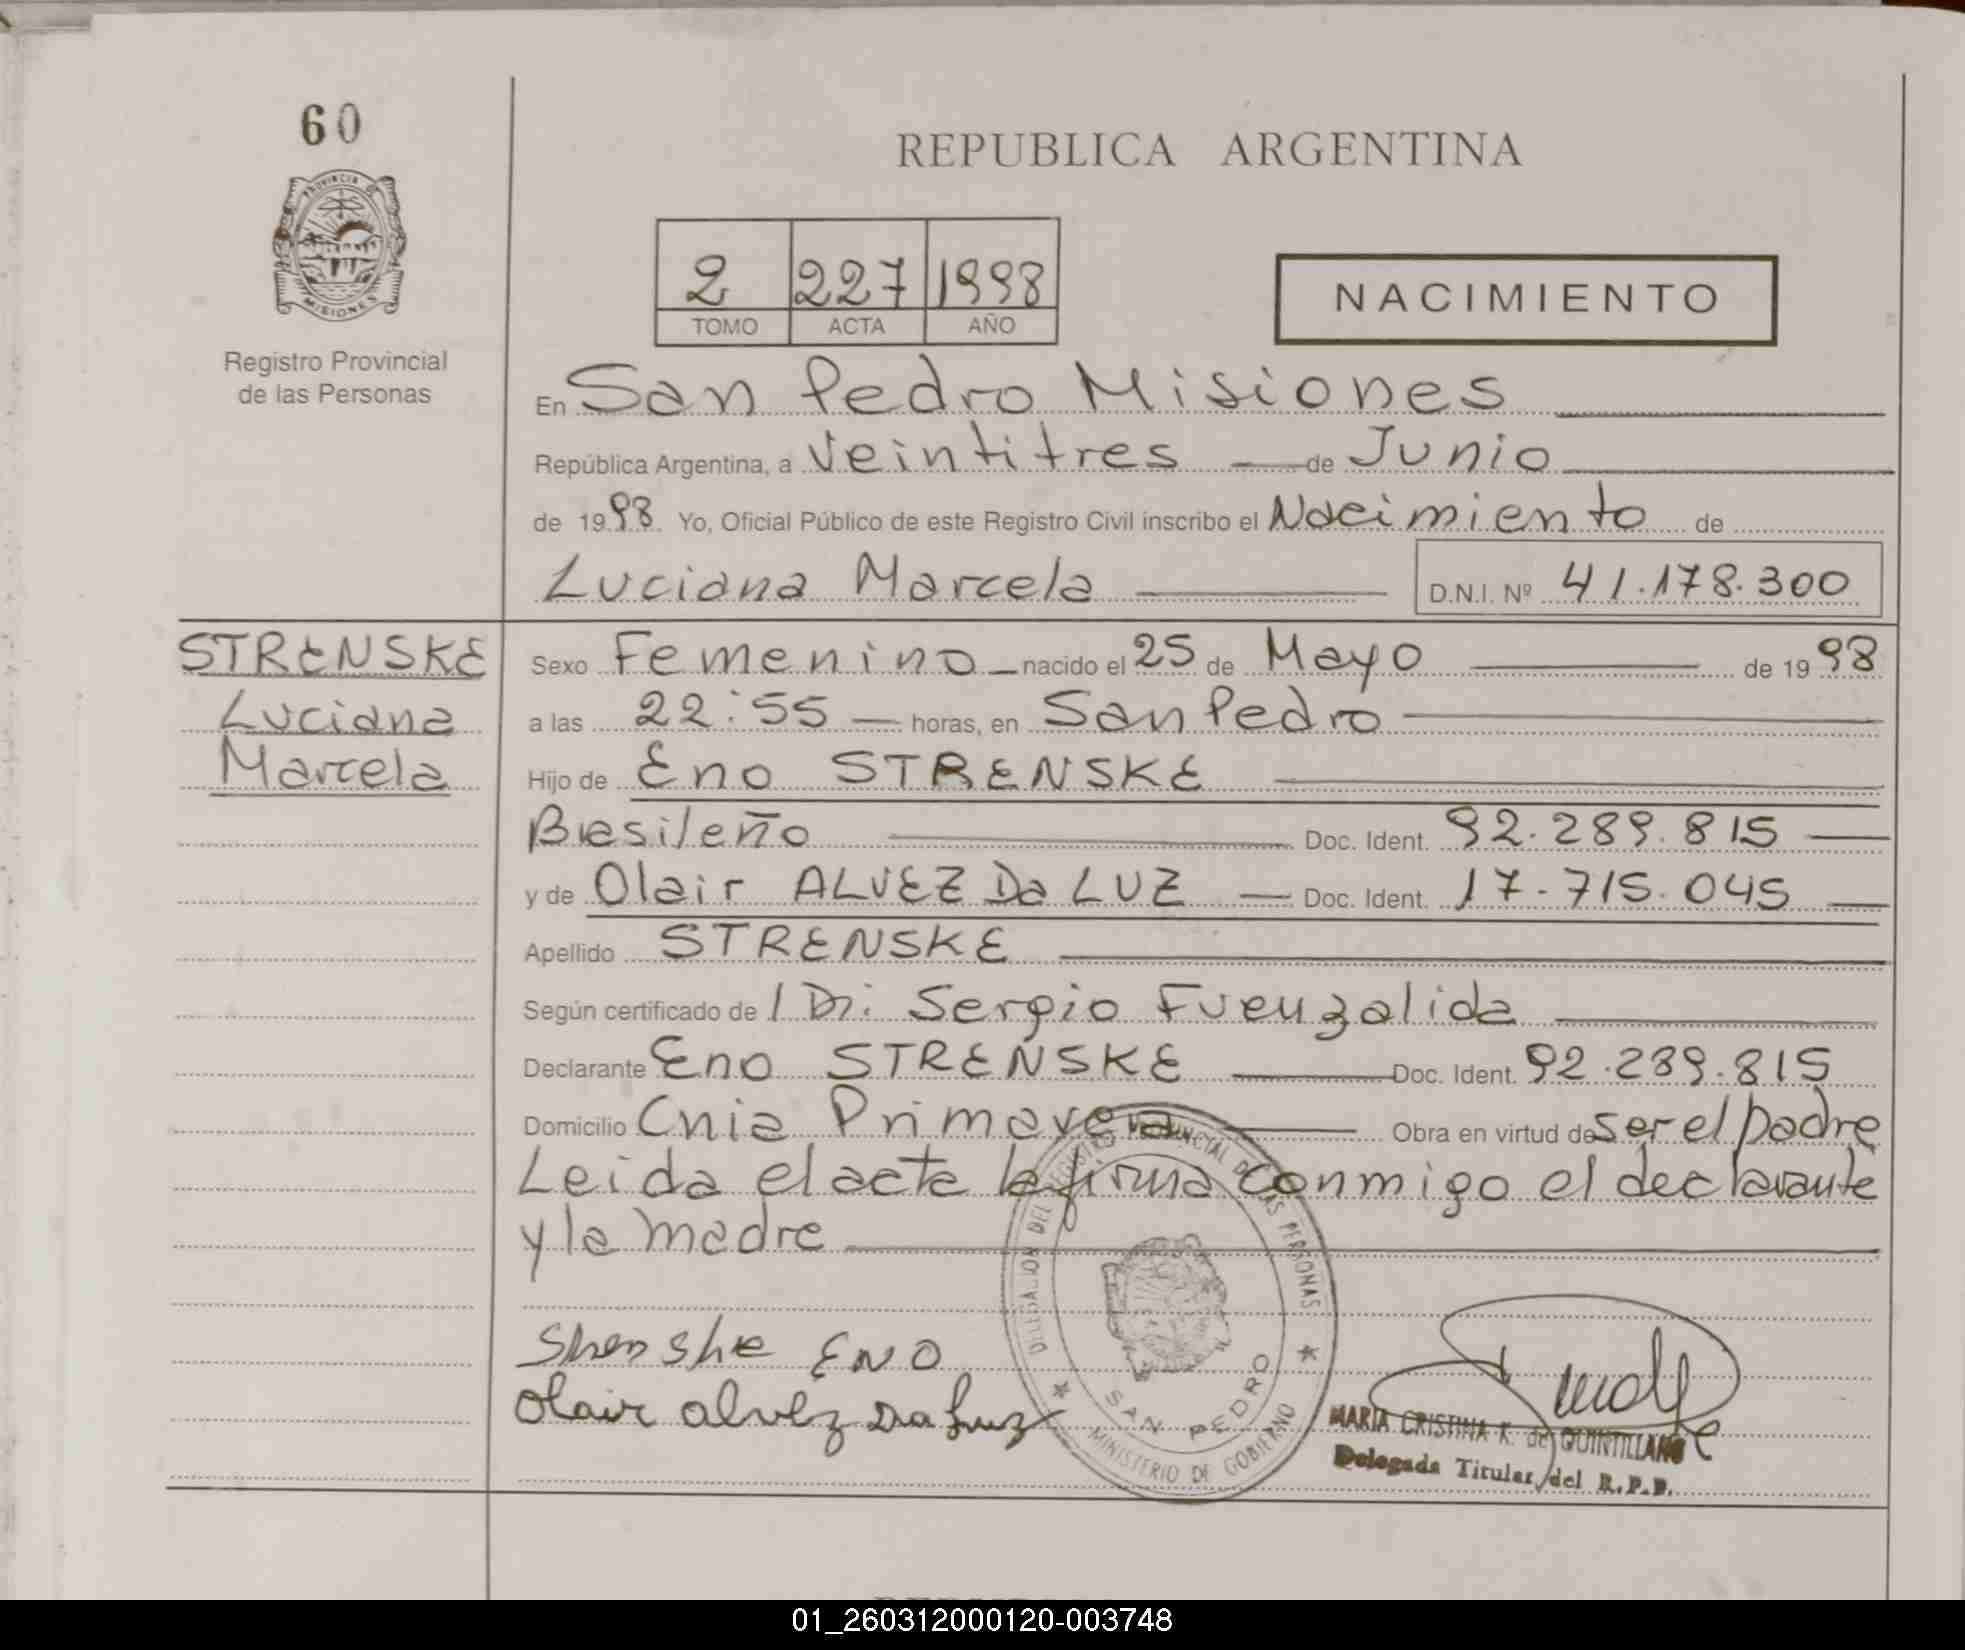 60
PROVINCIA DE
MISIONES
Registro Provincial
de las Personas
REPUBLICA ARGENTINA
2 227 1998
TOMO ACTA AÑO
NACIMIENTO
En San Pedro Misiones
República Argentina, a veintitres de Junio
de 1998 Yo, Oficial Público de este Registro Civil inscribo el Nacimiento de
Luciana Marcela D.N.I. Nº 41.178.300
STRENSKE
Luciana
Marcela
Sexo Femenino nacido el 25 de Mayo de 1998
a las 22:55 horas, en San Pedro
Hijo de Eno STRENSKE
Brasileño Doc. Ident. 92.289.815
y de Olair ALVEZ Da LUZ Doc. Ident. 17.715.045
Apellido STRENSKE
Según certificado de Dr: Sergio Fuenzalida
Declarante Eno STRENSKE Doc. Ident. 92.289.815
Domicilio Cnia Primavera Obra en virtud de ser el padre
Leida el acta la firma conmigo el declarante
y la madre
DELEGACION DEL REGISTRO PROVINCIAL DE LAS PERSONAS
SAN PEDRO
MINISTERIO DE GOBIERNO
ENO
Olair alvez Da Luz
MARIA CRISTINA K. de QUINTILLANO
Delegada Titular del R.P.P.
01_260312000120-003748